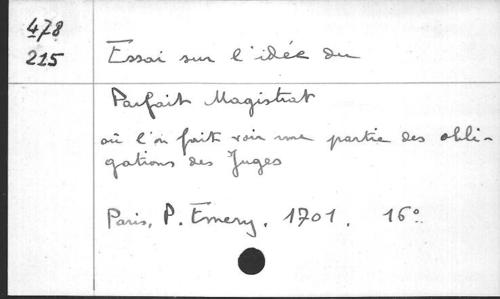 478
215
Essai sur l'idée du
Parfait Magistrat
où l'on fait voir une partie des obli-
gations des Juges
Paris, P. Emery, 1701. 16°